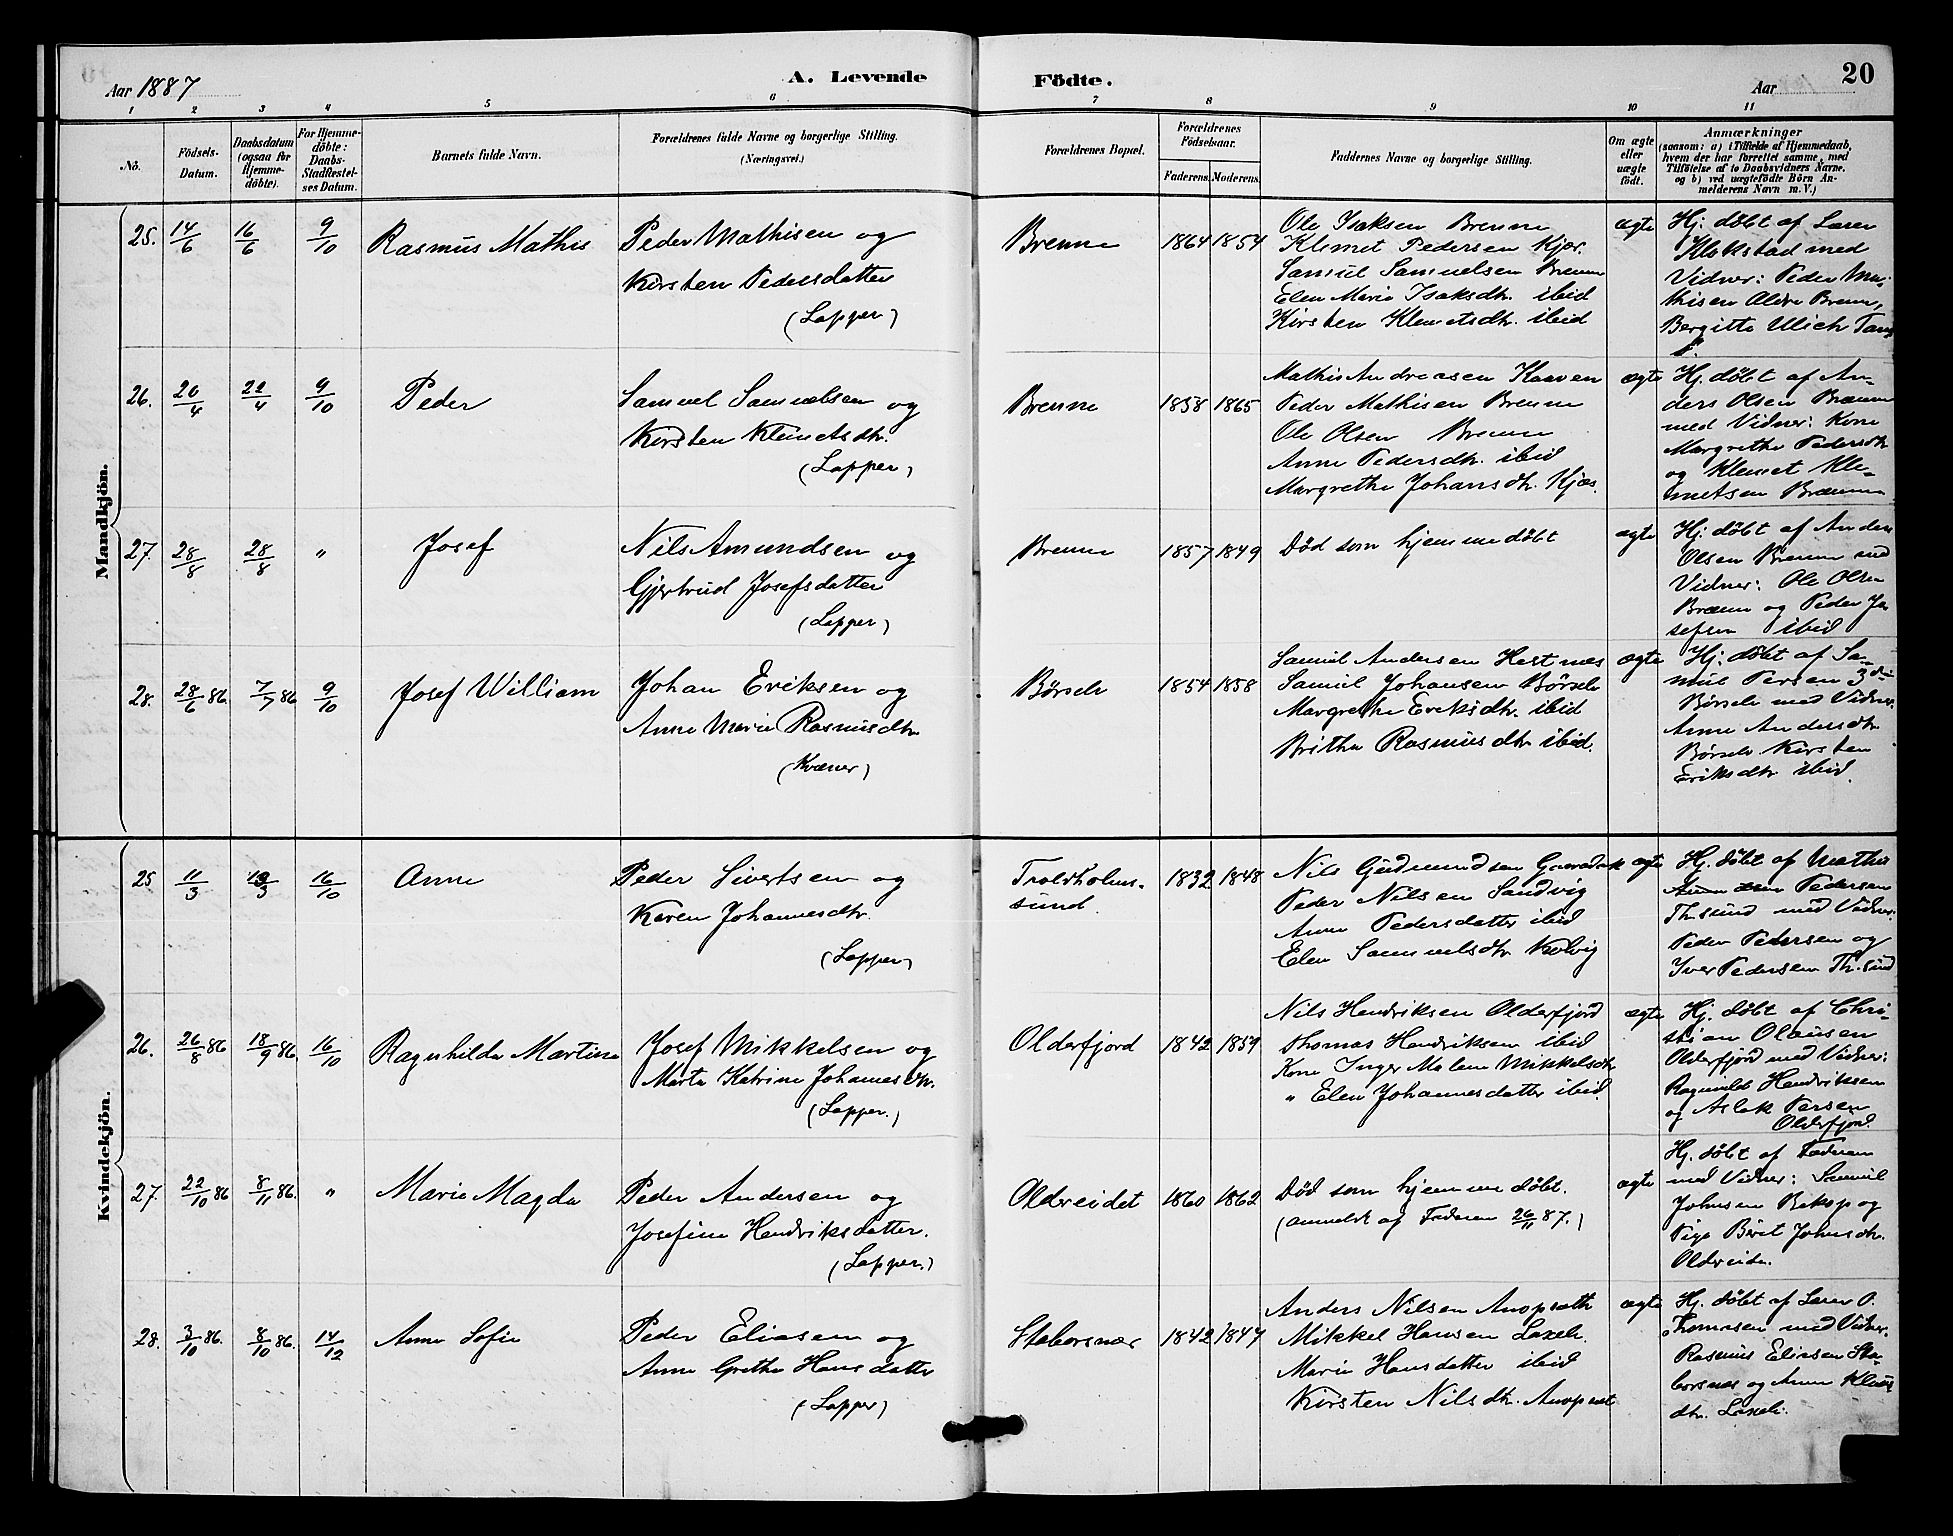 Aar 1887 A. Levende Födte. Aar 20
1 2 3 4 5 6 7 8 9 10 11
No. Födsels-Datum. Daabsdatum (ogsaa for Hjemme-döbte). For Hjemme-döbte: Daabs-Stadfæstel-ses Datum. Barnets fulde Navn. Forældrenes fulde Navne og borgerlige Stilling. (Næringsvei.) Forældrenes Bopæl. Forældrenes Födselsaar. Faderens. Moderens. Faddernes Navne og borgerlige Stilling. Om ægte eller uægte födt. Anmærkninger (saasom: a) i Tilfælde af Hjemmedaab, hvem der har forrettet samme, med Tilföielse af to Daabsvidners Navne. og b) ved uægtefödte Börn An-melderens Navn m. V.)
Mandkjön.
25. 14/6 16/6 9/10 Rasmus Mathis
Peder Mathisen og
Kirsten Pedersdatter
(Lapper)
Brenne 1864 1854
Ole Isaksen Brenne
Klemet Pedersen Kjær.
Samuel Samuelsen Brenne
Elen Marie Isaksdtr. ibid
Kirsten Klemetsdtr. ibid
ægte
Hj: döbt af Lærer
Klokstad med
Vidner: Peder Ma-
thisen Brenne,
Bergitte Ulich
26. 20/4 22/4 9/10 Peder
Samuel Samuelsen og
Kirsten Klemetsdtr.
(Lapper)
Brenne 1858 1865
Mathis Andreasen Kaaven
Peder Mathisen Brenne
Ole Olsen Brenne
Anne Pedersdtr. ibid
Margrethe Johansdtr. Kjæs.
ægte
Hj. döbt af An-
ders Olsen Brenne
med Vidner: Kone
Margrethe Pedersdtr
og Klemet Kle-
metsen Brenne
27. 28/8 28/8 " Josef
Nils Amundsen og
Gjertrud Josefsdatter
(Lapper)
Brenne 1857 1849
Död som hjemmedöbt
ægte
Hj: döbt af Anders
Olsen Brenne med
Vidner: Ole Olsen
Brenne og Peder Jo
sefsen ibid
28. 28/6 86. 7/7 86 9/10 Josef William
Johan Eriksen og
Anne Marie Rasmusdtr
(Kvæner)
Börselv 1854 1858
Samuel Andersen Hestnæs
Samuel Johansen Börselv
Margrethe Eriksdtr. ibid
Britha Rasmusdtr ibid.
ægte
Hj: döbt af Sa-
muel Persen
Börselv med Vidner.
Anne Andersdtr
Börselv Kirsten
Eriksdtr ibid.
Kvindekjön.
25 11/3 16/10 Anne
Peder Sivertsen og
Karen Johannesdtr.
(Lapper)
Troldholm-
sund. 1832 1848
Nils Gudmundsen
Peder Nilsen Sandvig
Anne Pedersdatter ibid
Elen Samuelsdtr Kolvig
ægte
Hj. döbt af Mathis
Pedersen
Th.sund med Vidner:
Peder Pedersen og
Iver Pedersen Th.sund
26. 26/8 86 18/9 86. 16/10 Ragnhilda Martine
Josef Mikkelsen og
Marta Katrine Johannesdtr.
(Lapper.)
Olderfjord 1842 1859
Nils Hendriksen Olderfjord
Thomas Hendriksen ibid
Kone Inger Malene Mikkelsdtr
" Elen Johannesdatter ibid.
ægte
Hj. döbt af Chri-
stian Olausen
Olderfjord med Vidner:
Ragnild Hendriksen
og Aslak Persen
Olderfjord.
27. 22/10 86 8/11 86. " Marie Magda
Peder Andersen og
Josefine Hendriksdatter.
(Lapper.)
Oldereidet 1860 1862
Död som hjemmedöbt.
(anmeldt af Faderen 26/11 87.)
ægte
Hj. döbt af Faderen
med Vidner: Samuel
Johnsen og
Pige Berit Johnsdtr.
Oldereide.
28. 3/10 86. 8/10 86. 14/12 Anne Sofie
Peder Eliasen og
Anne Grethe Hansdatter
(Lapper)
Staborsnæs 1842 1847
Anders Nilsen
Mikkel Hansen Laxelv.
Marie Hansdatter ibid
Kirsten Nilsdtr.
ægte
Hj. döbt af Lærer O.
Thomasen med Vidner.
Rasmus Eliasen Sta-
borsnæs og Anne
dtr. Laxelv.